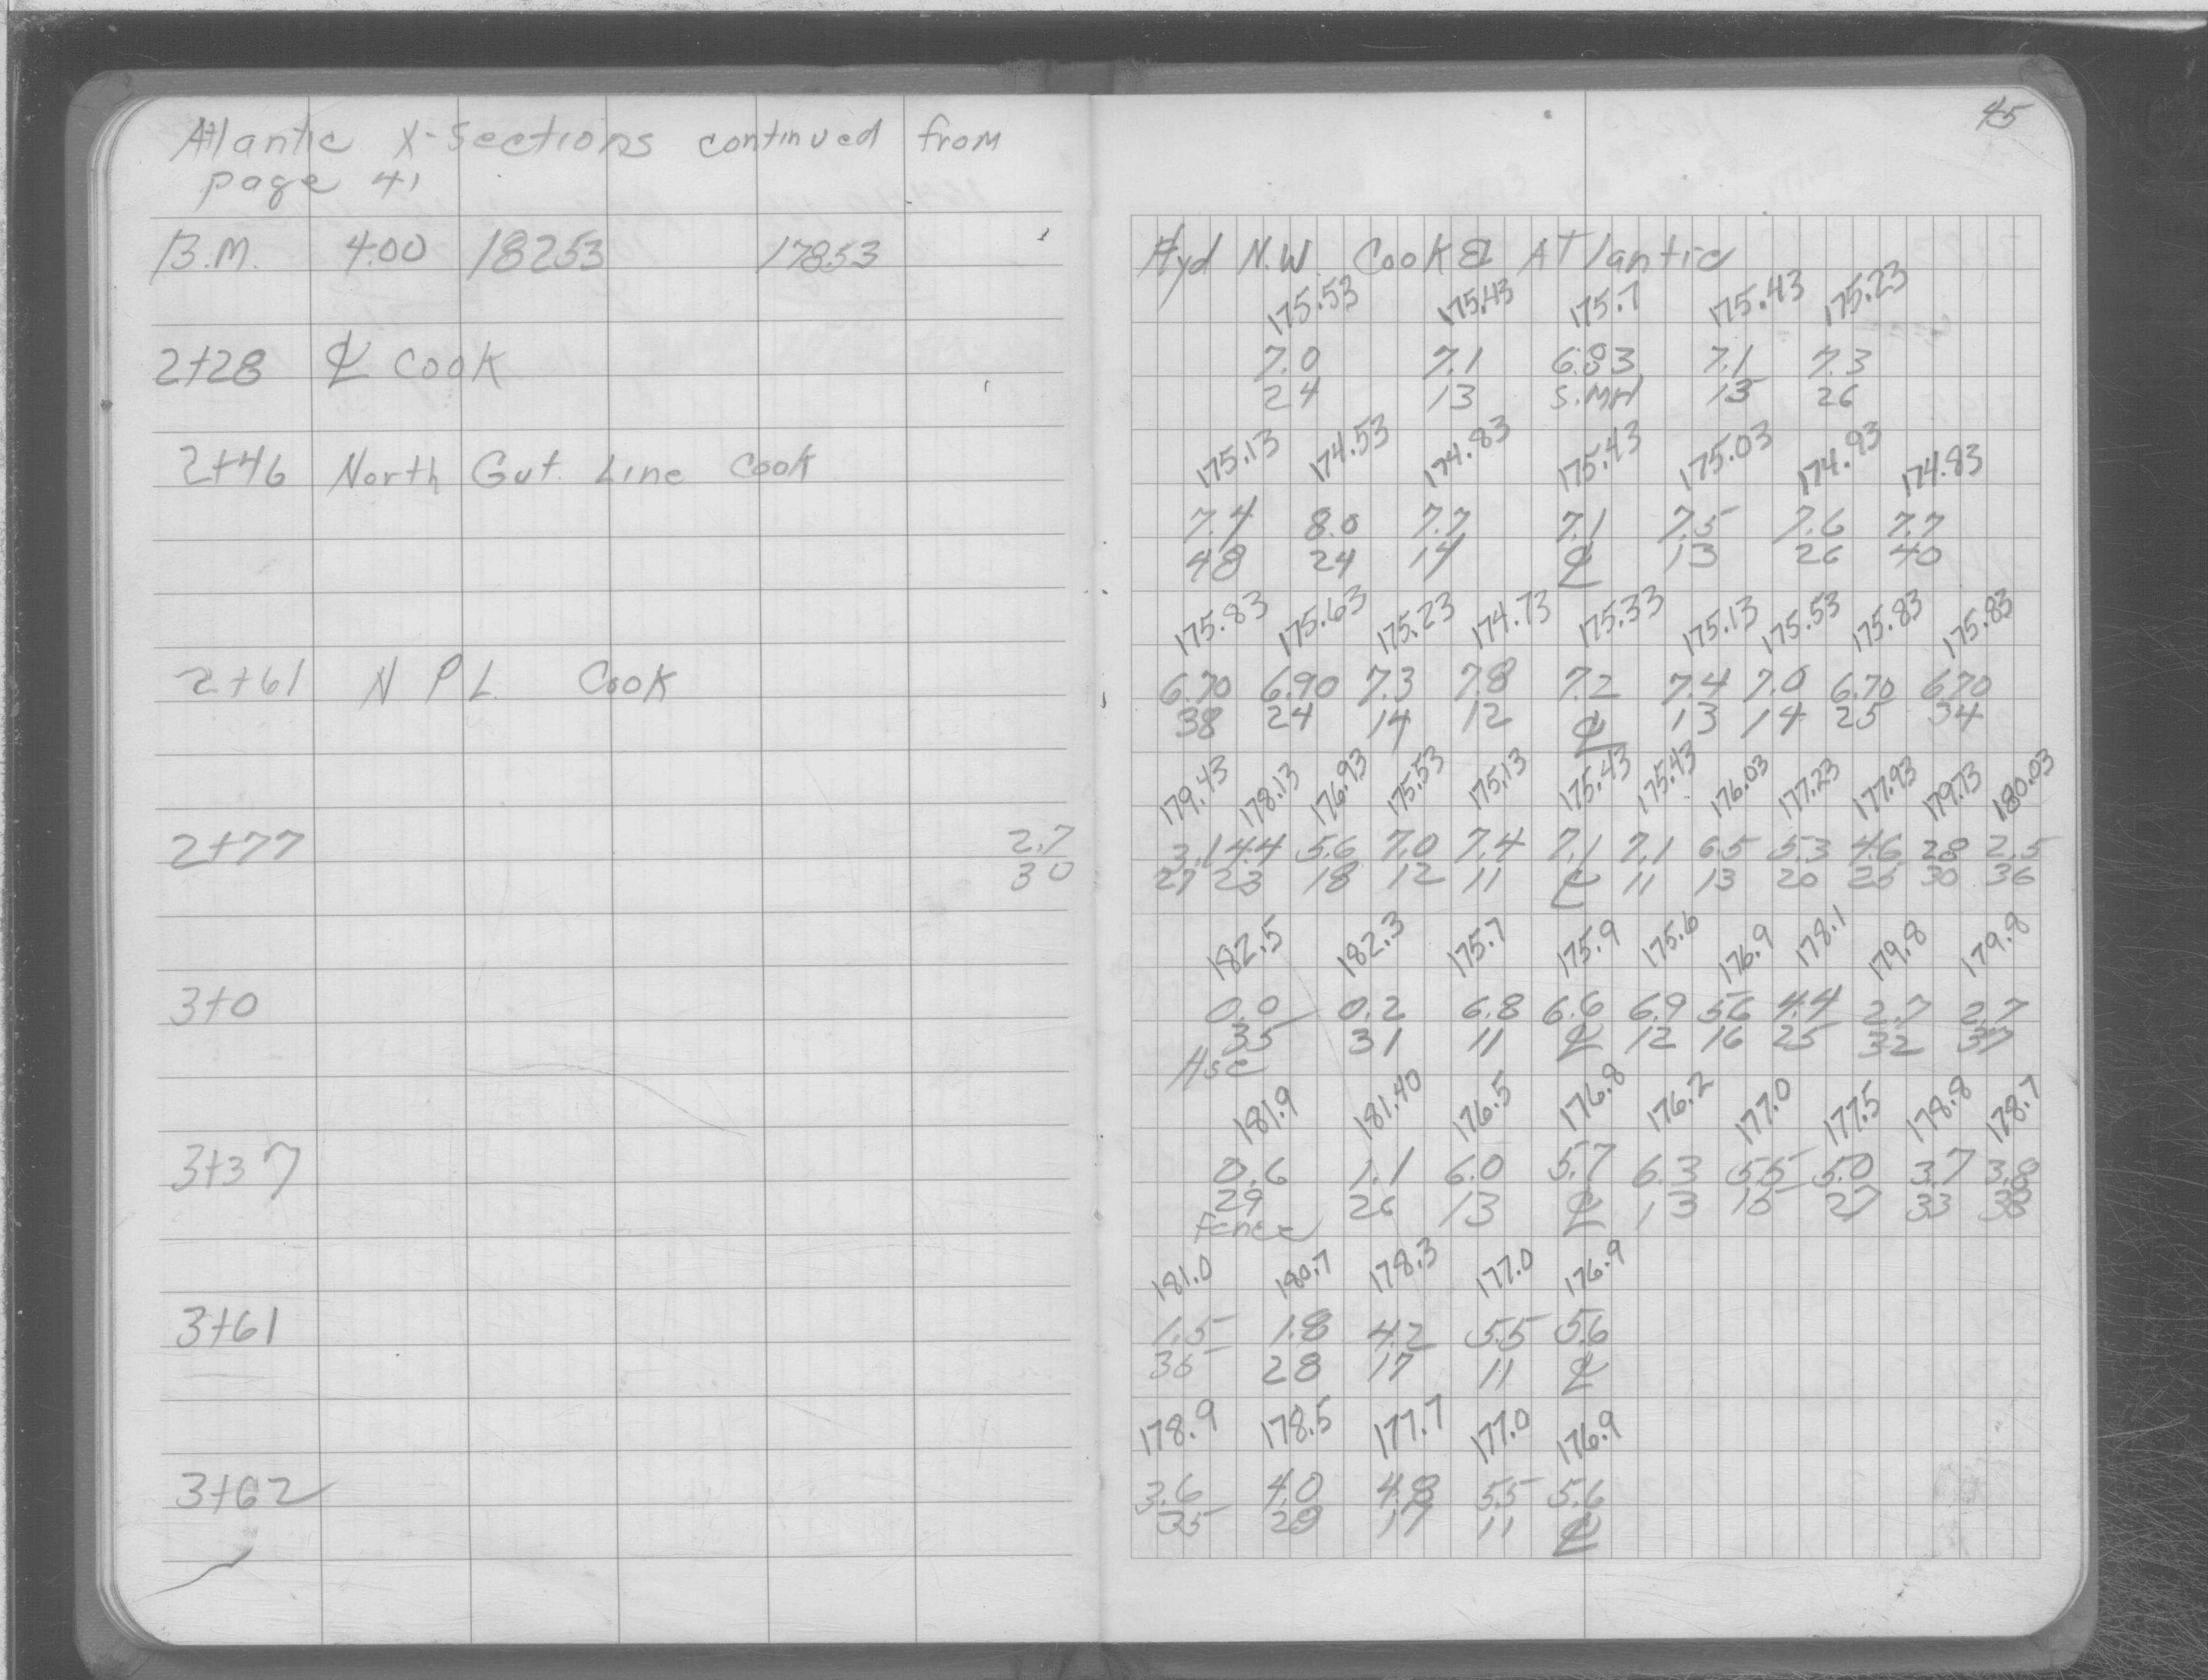 45
Atlantic X-Sections continued from
page 41
B.M. 4.00 18253 17853 Hyd N.W. Cook & Atlantic
175.53 175.43 175.7 175.43 175.23
2+28 ℄ Cook 7.0 7.1 6.83 7.1 7.3
24 13 S.MH 13 26
175.13 174.53 174.83 175.43 175.03 174.93 174.83
2+46 North Gut. Line Cook
7.4 8.0 7.7 7.1 7.5 7.6 7.7
48 24 14 ℄ 13 26 40
175.83 175.63 175.23 174.73 175.33 175.13 175.53 175.83 175.83
2+61 N P L Cook 6.70 6.90 7.3 7.8 7.2 7.4 7.0 6.70 6.70
38 24 14 12 ℄ 13 14 25 34
179.43 178.13 176.93 175.53 175.13 175.43 175.43 176.03 177.23 177.93 179.73 180.03
2+77 2.7 3.1 4.4 5.6 7.0 7.4 7.1 7.1 6.5 5.3 4.6 2.8 2.5
30 27 23 18 12 11 ℄ 11 13 20 26 30 36
182.5 182.3 175.7 175.9 175.6 176.9 178.1 179.8 179.8
3+0 0.0 0.2 6.8 6.6 6.9 5.6 4.4 2.7 2.7
35 31 11 ℄ 12 16 25 32 37
Hse
181.9 181.40 176.5 176.8 176.2 177.0 177.5 178.8 178.7
3+37 0.6 1.1 6.0 5.7 6.3 5.5 5.0 3.7 3.8
29 26 13 ℄ 13 15 27 33 38
Fence
181.0 180.7 178.3 177.0 176.9
3+61 1.5 1.8 4.2 5.5 5.6
35 28 17 11 ℄
178.9 178.5 177.7 177.0 176.9
3+62 3.6 4.0 4.8 5.5 5.6
35 28 17 11 ℄